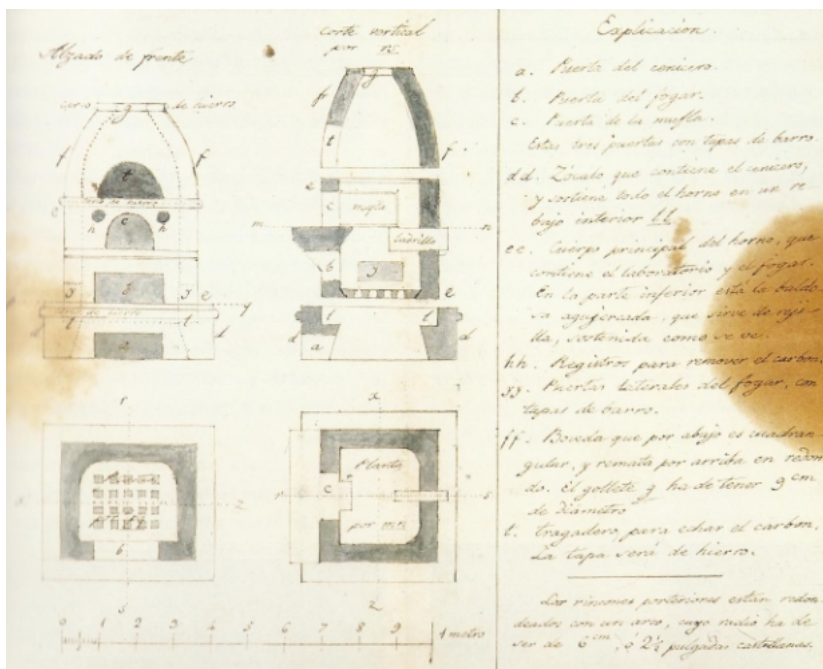 Alzado de frente
Corte vertical
por rs.
cerco g de hierro
f f
t
cerco de hierro
c
h h
g b g e
y
cerco de hierro
l l
a d
g
f
t f
e
c mufla
m n
ladrillo
b g
e
l l
d a d
r
z
b
s
x
Planta
r c s
por mn
z
0 1 2 3 4 5 6 7 8 9 1 metro
Explicacion.
a. Puerta del cenicero.
b. Puerta del fogar.
c. Puerta de la mufla.
Estas tres puertas con tapas de barro.
dd. Zócalo que contiene el cenicero,
y sostiene todo el horno en un re
bajo interior ll.
ee. Cuerpo principal del horno, que
contiene el laboratorio y el fogar.
En la parte inferior está la baldo
sa agugereada, que sirve de reji-
lla, sostenida como se ve.
hh. Registros para remover el carbon.
gg. Puertas laterales del fogar, con
tapas de barro.
ff. Boveda que por abajo es cuadran
gular, y remata por arriba en redon
do. El gollete g ha de tener 9 cm
de diámetro
t. tragadero, para echar el carbon.
La tapa será de hierro.
Los rincones posteriores estan redon
deados con un arco, cuyo radio ha de
ser de 6 cm, ó 2½ pulgadas castellanas.